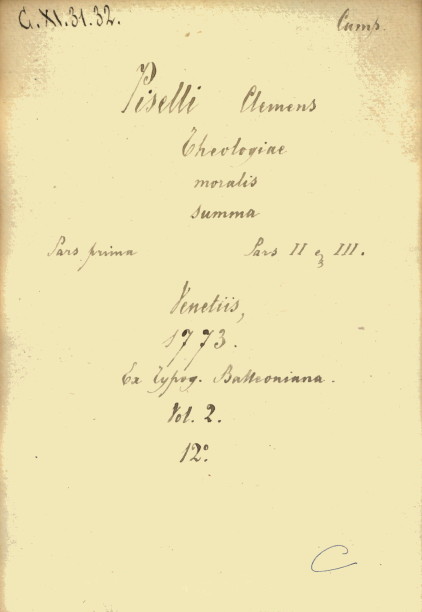 G. XI. 31. 32. Camp.
Piselli Clemens
Theologiae
moralis
summa
Pars prima Pars II e III.
Venetiis,
1773.
Ex typog. Balleoniana.
Vol. 2.
12º
C